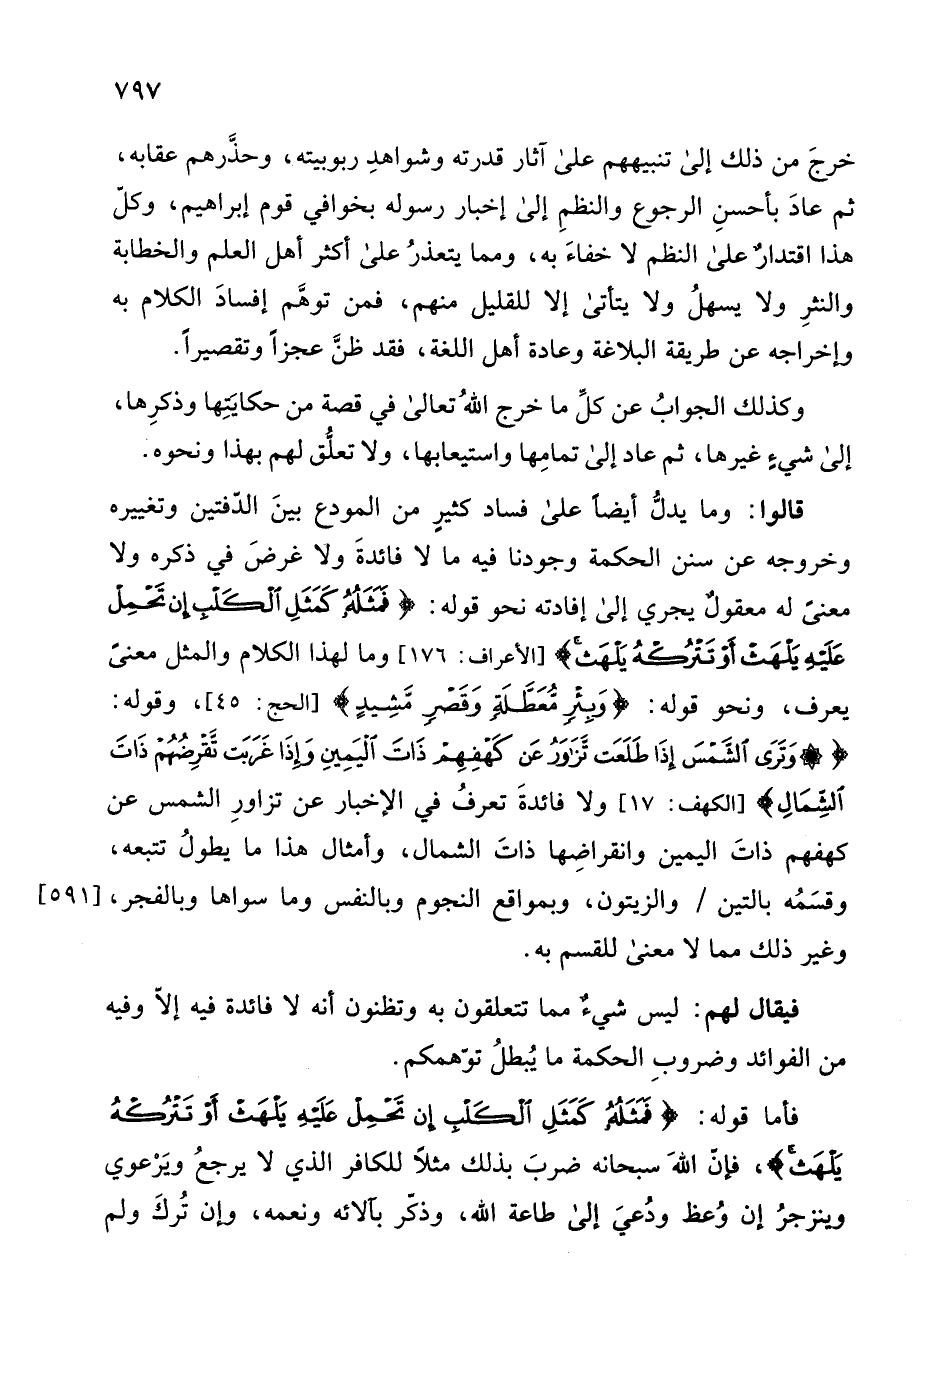 ٧٩٧
خرجَ من ذلك إلىٰ تنبيههم علىٰ آثار قدرته وشواهدِ ربوبيته، وحذَّرهم عقابه،
ثم عادَ بأحسنِ الرجوع والنظمِ إلىٰ إخبار رسوله بخوافي قوم إبراهيم، وكلّ
هذا اقتدارٌ علىٰ النظم لا خفاءَ به، ومما يتعذرُ علىٰ أكثر أهل العلم والخطابة
والنثرِ ولا يسهلُ ولا يتأتىٰ إلا للقليل منهم، فمن توهَّم إفسادَ الكلام به
وإخراجه عن طريقة البلاغة وعادة أهل اللغة، فقد ظنَّ عجزاً وتقصيراً.
وكذلك الجوابُ عن كلِّ ما خرج اللهُ تعالىٰ في قصة من حكايَتِها وذكرِها،
إلىٰ شيءٍ غيرها، ثم عاد إلىٰ تمامِها واستيعابها، ولا تعلُّق لهم بهذا ونحوه.
قالوا: وما يدلُّ أيضاً علىٰ فساد كثيرٍ من المودع بينَ الدّفتين وتغييره
وخروجه عن سنن الحكمة وجودنا فيه ما لا فائدةَ ولا غرضَ في ذكره ولا
معنىً له معقولٌ يجري إلىٰ إفادته نحو قوله: ﴿فَمَثَلُهُۥ كَمَثَلِ ٱلۡكَلۡبِ إِن تَحۡمِلۡ
عَلَيۡهِ يَلۡهَثۡ أَوۡ تَتۡرُكۡهُ يَلۡهَثۚ﴾ [الأعراف: ١٧٦] وما لهذا الكلام والمثل معنىً
يعرف، ونحو قوله: ﴿وَبِئۡرٖ مُّعَطَّلَةٖ وَقَصۡرٖ مَّشِيدٍ﴾ [الحج: ٤٥]، وقوله:
﴿۞ وَتَرَى ٱلشَّمۡسَ إِذَا طَلَعَت تَّزَٰوَرُ عَن كَهۡفِهِمۡ ذَاتَ ٱلۡيَمِينِ وَإِذَا غَرَبَت تَّقۡرِضُهُمۡ ذَاتَ
ٱلشِّمَالِ﴾ [الكهف: ١٧] ولا فائدةَ تعرفُ في الإخبار عن تزاورِ الشمس عن
كهفهم ذاتَ اليمين وانقراضِها ذاتَ الشمال، وأمثال هذا ما يطولُ تتبعه،
وقسَمُه بالتين / والزيتون، وبمواقع النجوم وبالنفس وما سواها وبالفجر، [٥٩١]
وغير ذلك مما لا معنىٰ للقسم به.
فيقال لهم: ليس شيءٌ مما تتعلقون به وتظنون أنه لا فائدة فيه إلاّ وفيه
من الفوائد وضروبِ الحكمة ما يُبطلُ توّهمكم.
فأما قوله: ﴿فَمَثَلُهُۥ كَمَثَلِ ٱلۡكَلۡبِ إِن تَحۡمِلۡ عَلَيۡهِ يَلۡهَثۡ أَوۡ تَتۡرُكۡهُ
يَلۡهَثۚ﴾، فإنّ اللهَ سبحانه ضربَ بذلك مثلاً للكافر الذي لا يرجعُ ويَرْعوي
وينزجرُ إن وُعظ ودُعيَ إلىٰ طاعة الله، وذكّر بآلائه ونعمه، وإن تُركَ ولم